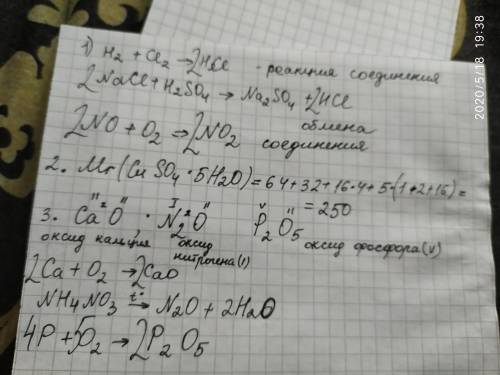 1) H₂ + Cl₂ → 2HCl - реакция соединения
2NaCl + H₂SO₄ → Na₂SO₄ + 2HCl
обмена
2NO + O₂ → 2NO₂ соединения
2. Mr (Cu SO₄ · 5H₂O) = 64 + 32 + 16·4 + 5·(1·2+16) =
= 250
3. Ca O · N₂ O P₂ O₅
оксид кальция оксид нитрогена (I) оксид фосфора (V)
2Ca + O₂ → 2CaO
NH₄NO₃ t°→ N₂O + 2H₂O
4P + 5O₂ → 2P₂O₅
2020/5/18 19:38